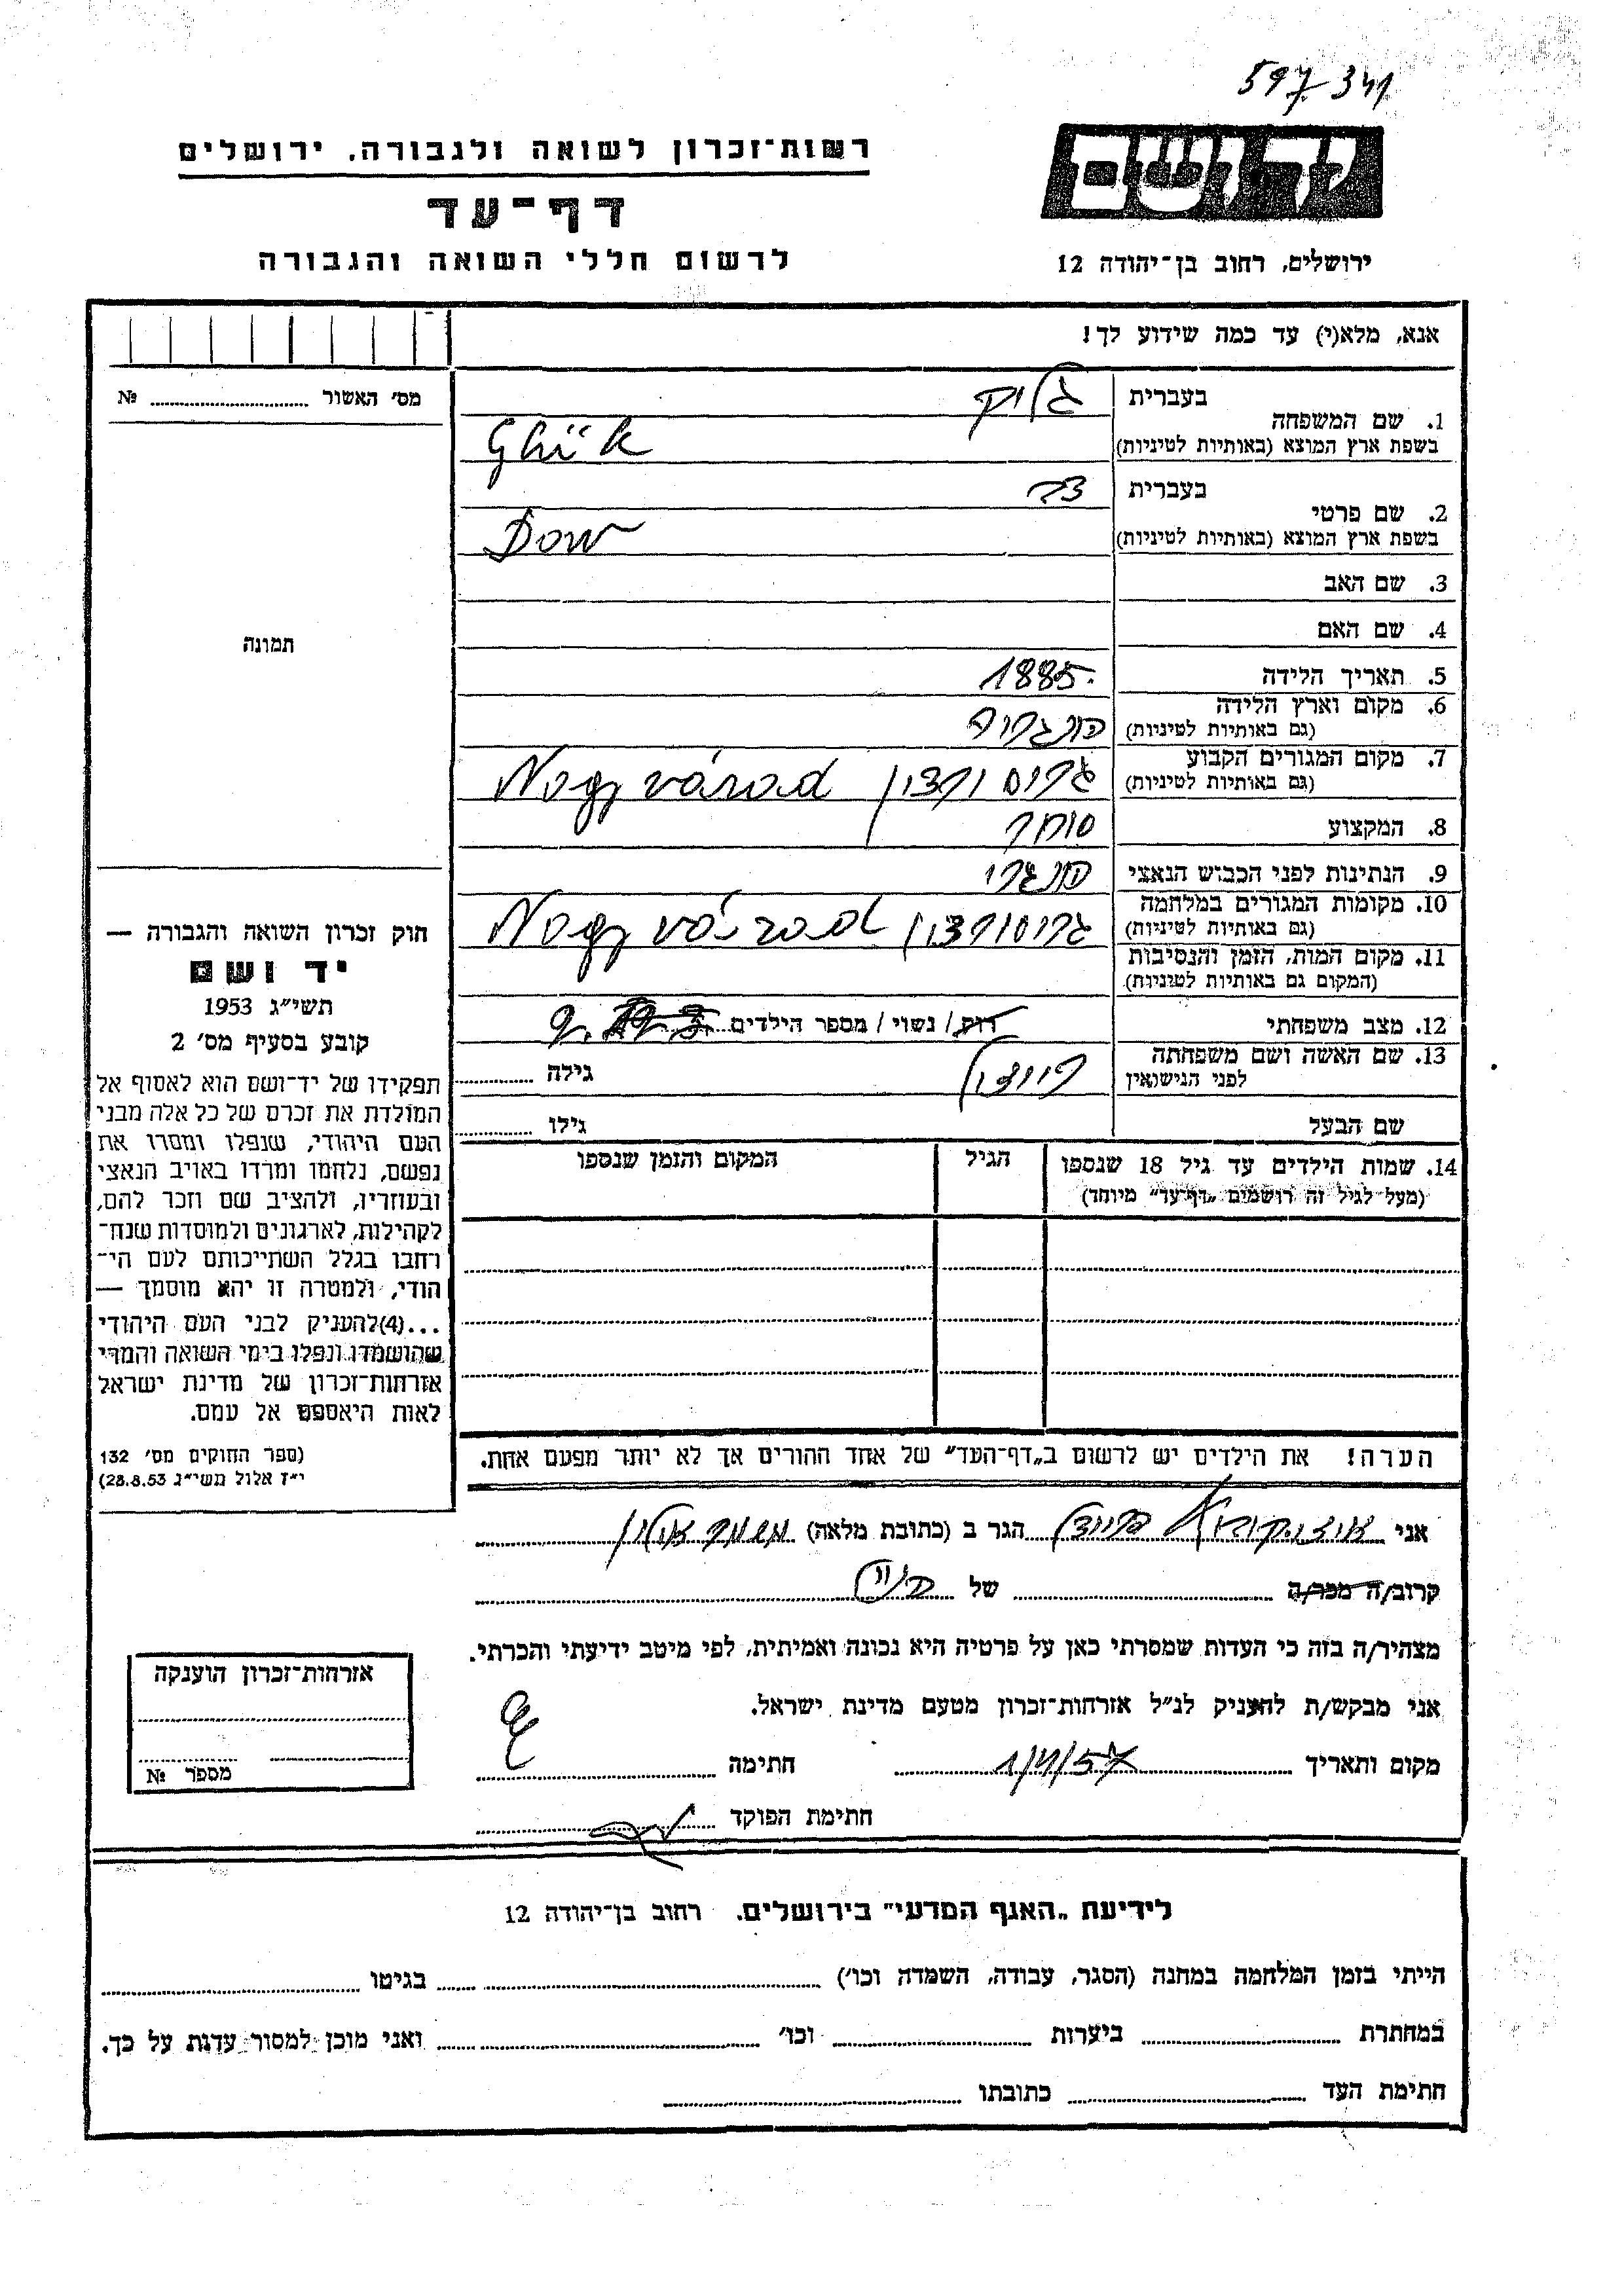 597341
רשות־זכרון לשואה ולגבורה, ירושלים
דף־עד
לרשום חללי השואה והגבורה
ידושם
ירושלים, רחוב בן־יהודה 12
אנא, מלא(י) עד כמה שידוע לך!
מס׳ האשור № 
1. שם המשפחה בעברית גליק
בשפת ארץ המוצא (באותיות לטיניות) Glük
2. שם פרטי בעברית דב
בשפת ארץ המוצא (באותיות לטיניות) Dow
3. שם האב
4. שם האם
תמונה
5. תאריך הלידה 1885
6. מקום וארץ הלידה
(גם באותיות לטיניות) הונגריה
7. מקום המגורים הקבוע
(גם באותיות לטיניות) גרוס ורדין Nagyvárad
8. המקצוע סוחר
9. הנתינות לפני הכבוש הנאצי הונגרי
10. מקומות המגורים במלחמה
(גם באותיות לטיניות) גרוסורדין Nagyvárad
11. מקום המות, הזמן והנסיבות
(המקום גם באותיות לטיניות)
12. מצב משפחתי רווק / נשוי / מספר הילדים 9
13. שם האשה ושם משפחתה
לפני הנישואין גילה
שם הבעל גילו
14. שמות הילדים עד גיל 18 שנספו
(מעל לגיל זה רושמים „דף־עד״ מיוחד)
הגיל
המקום והזמן שנספו
חוק זכרון השואה והגבורה —
יד ושם
תשי״ג 1953
קובע בסעיף מס׳ 2
תפקידו של יד־ושם הוא לאסוף אל
המולדת את זכרם של כל אלה מבני
העם היהודי, שנפלו ומסרו את
נפשם, נלחמו ומרדו באויב הנאצי
ובעוזריו, ולהציב שם וזכר להם,
לקהילות, לארגונים ולמוסדות שנח־
רחבו בגלל השתייכותם לעם הי־
הודי, ולמטרה זו יהא מוסמך —
...(4)להעניק לבני העם היהודי
שהושמדו ונפלו בימי השואה והמרי
אזרחות־זכרון של מדינת ישראל
לאות היאספם אל עמם.
(ספר החוקים מס׳ 132
י״ז אלול תשי״ג 28.8.53)
הערה! את הילדים יש לרשום ב„דף־העד״ של אחד ההורים אך לא יותר מפעם אחת.
אני הגר ב (כתובת מלאה) משמר אילון
קרוב/ה מכר/ה של
מצהיר/ה בזה כי העדות שמסרתי כאן על פרטיה היא נכונה ואמיתית, לפי מיטב ידיעתי והכרתי.
אני מבקש/ת להעניק לנ״ל אזרחות־זכרון מטעם מדינת ישראל.
מקום ותאריך 1/4/57 חתימה
חתימת הפוקד
אזרחות־זכרון הוענקה
מספר №
לידיעת „האגף המדעי״ בירושלים, רחוב בן־יהודה 12
הייתי בזמן המלחמה במחנה (הסגר, עבודה, השמדה וכו׳) בגיטו
במחתרת ביערות וכו׳ ואני מוכן למסור עדות על כך.
חתימת העד כתובתו